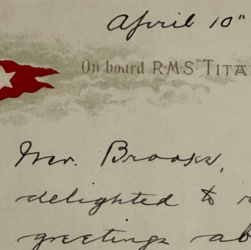 April 10"
On board R·M·S "TITA
Mr. Brooks,
delighted to
greetings